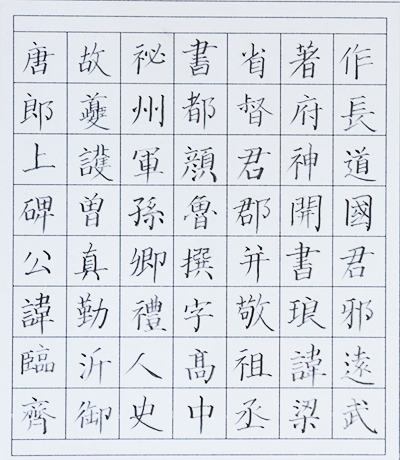 唐故祕書省著作
郎夔州都督府長
上護軍顏君神道
碑曾孫魯郡開國
公真卿撰并書君
諱勤禮字敬琅邪
臨沂人髙祖諱遠
齊御史中丞梁武